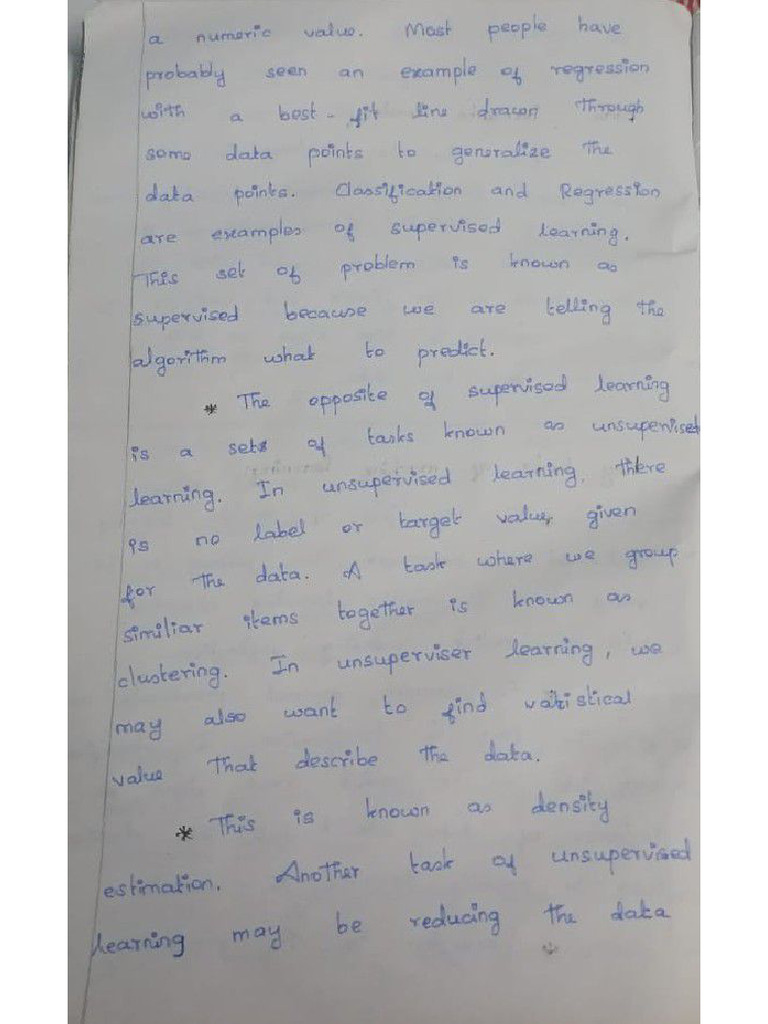 a numeric value. Most people have
probably seen an example of regression
with a best-fit line drawn through
some data points to generalize the
data points. Classification and Regression
are examples of supervised learning.
This set of problem is known as
supervised because we are telling the
algorithm what to predict.
* The opposite of supervised learning
is a sets of tasks known as unsupervised
learning. In unsupervised learning, there
is no label or target value, given
for the data. A task where we group
similiar items together is known as
clustering. In unsuperviser learning, we
may also want to find
value that describe the data.
* This is known as density
estimation. Another task of unsupervised
learning may be reducing the data